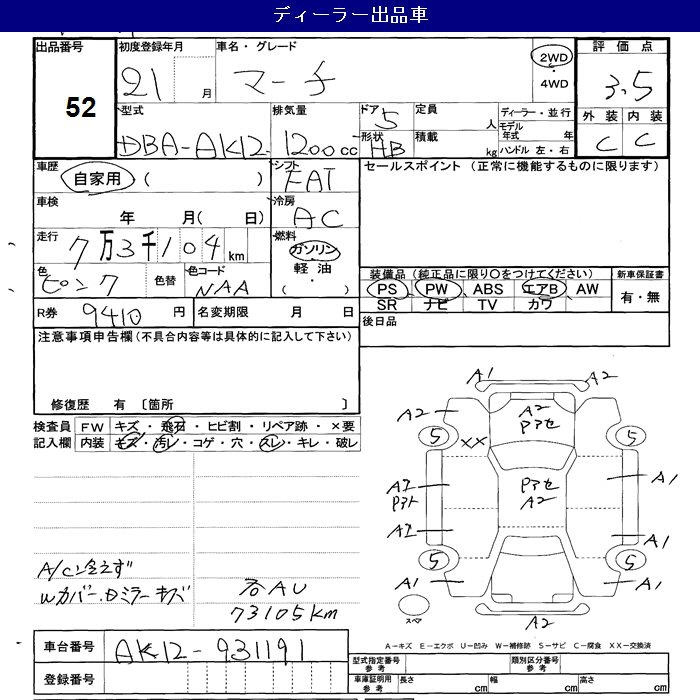 ディーラー出品車
出品番号 初度登録年月 車名・グレード 2WD 評価点
52 21 月 マーチ ・ 3.5
4WD
型式 排気量 ドア 5 定員 ディーラー・並行 外装 内装
DBA-AK12 1200cc 形状 HB 積載 人 モデル年式 年 C C
kg ハンドル 左・右
車歴 自家用 ( ) シフト FAT セールスポイント (正常に機能するものに限ります)
車検 年 月( 日) 冷房 AC
走行 7万3千104km 燃料 ガソリン
軽油
( ・ )
色 ピンク 色替 色コード NAA
装備品 (純正品に限り○をつけてください) 新車保証書
PS PW ABS エアB AW 有・無
SR ナビ TV カワ
R券 9410円 名変期限 月 日 後日品
注意事項申告欄(不具合内容等は具体的に記入して下さい)
修復歴 有 〔箇所 〕
検査員 FW キズ・飛石・ヒビ割・リペア跡・×要
記入欄 内装 キズ・汚レ・コゲ・穴・スレ・キレ・破レ
A1 A2
A2 A2
Pアセ
5 XX 5
A1 Pアセ A1
A2
A1
A1 5 5 A1
スペア A2
73105km
A-キズ E-エクボ U-凹み W-補修跡 S-サビ C-腐食 XX-交換済
車台番号 AK12-931191
登録番号
型式指定番号 参考 類別区分番号 参考
車庫証明用 参考 長さ cm 幅 cm 高さ cm